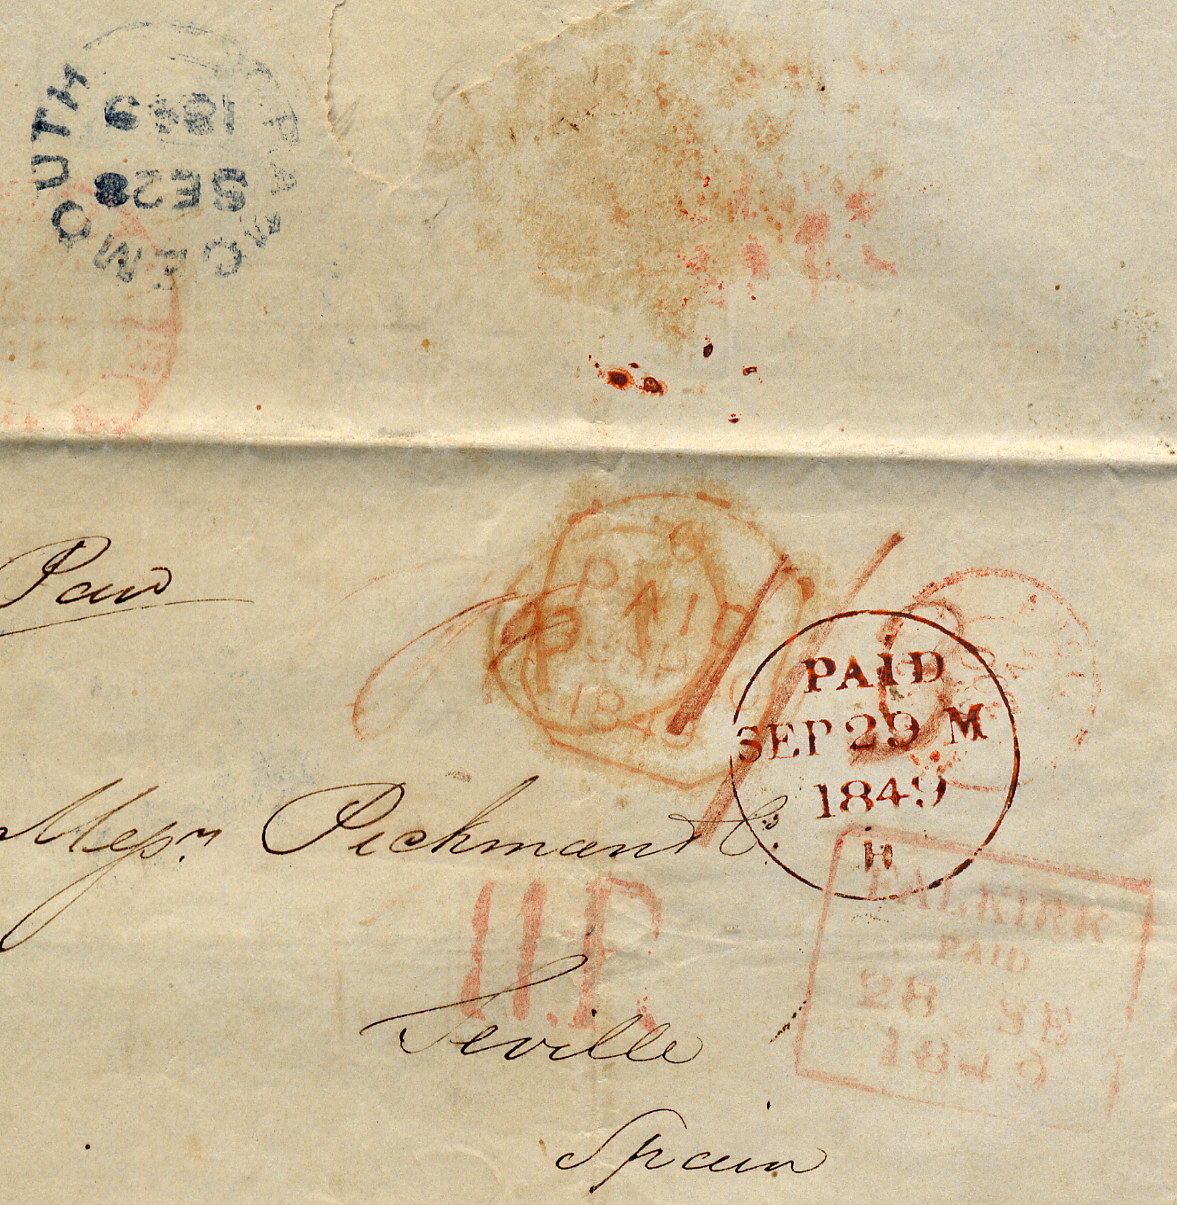 GRANGEMOUTH
SE 28
1849
Paid
PAID
1849
PAID
SEP 29 M
1849
H
Messrs Pickman & Co.
11.R
FALKIRK
PAID
28 SE
1849
Seville
Spain